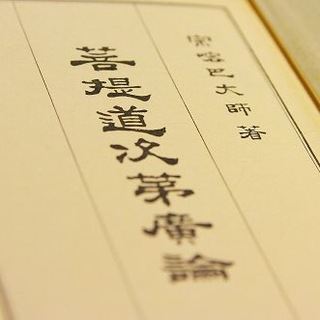 宗喀巴大師著
菩提道次第廣論